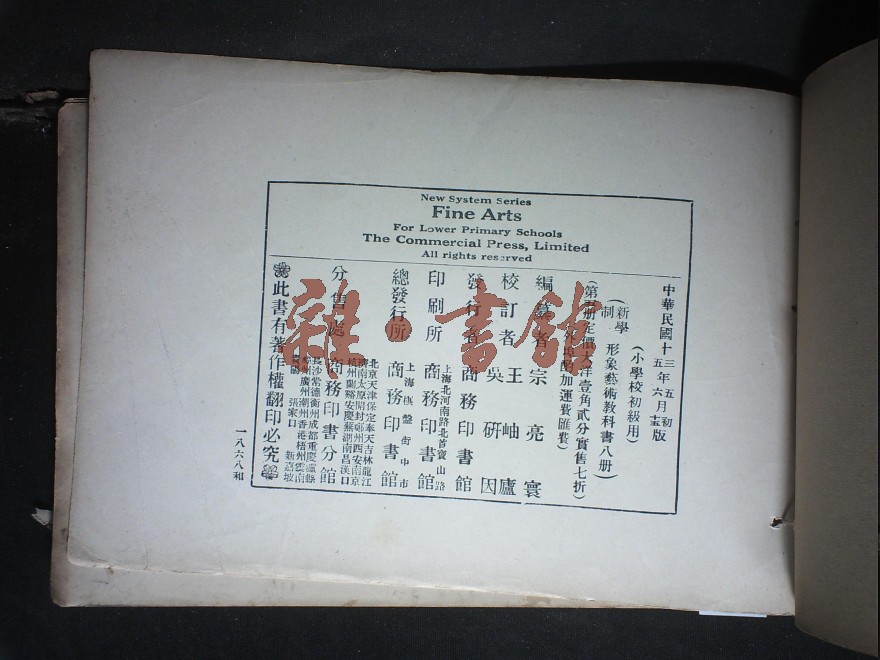 New System Series
Fine Arts
For Lower Primary Schools
The Commercial Press, Limited
All rights reserved
中華民國十三年五月初版
五年六月十五版
(小學校初級用)
(新學制形象藝術教科書八册)
(第册定價大洋壹角貳分實售七折)
外埠酌加運費匯費
編纂者 宗亮寰
校訂者 王岫廬 吳研因
發行者 商務印書館
上海北河南路北首寶山路
印刷所 商務印書館
上海棋盤街中市
總發行所 商務印書館
分售處 商務印書分館
北京天津保定奉天吉林龍江
濟南太原開封鄭州西安南京
杭州蘭谿安慶蕪湖南昌漢口
長沙常德衡州成都重慶瀘縣
福州廣州潮州香港梧州雲南
貴陽 張家口 新嘉坡
此書有著作權翻印必究
一八六八和
雜·書館